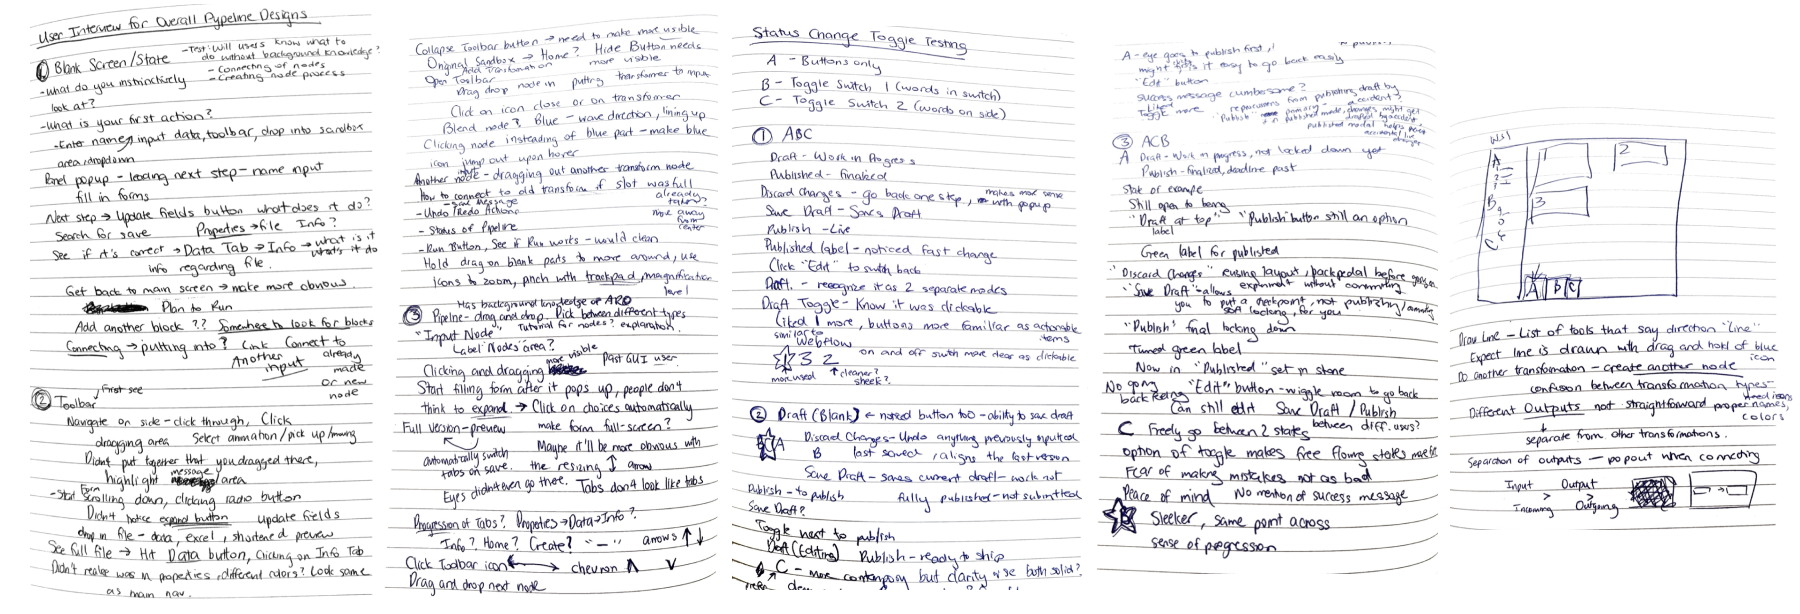 User Interview for Overall Pypeline Designs
① Blank Screen/State
-Test: Will users know what to do without background knowledge?
- Connecting of nodes
- Creating node process
-what do you instrinctively look at?
-What is your first action?
-Enter name, input data, toolbar, drop into sandbox
area, dropdown
Panel popup - leading next step - name input
fill in forms
Next step → Update fields button what does it do?
Search for save Properties → file Info?
See if it's correct → Data Tab → Info → what is it
what's it do
info regarding file.
Get back to main screen → make more obvious.
Plan to Run
Add another block ?? Somewhere to look for blocks
Connecting → putting into? Link Connect to
Another input
already made or new node
② Toolbar
first see
Navigate on side - click through, Click
dragging area Select animation/pick up/moving
Didn't put together that you dragged there,
highlight message area
Form
Scrolling down, clicking radio button
Didn't notice expand button update fields
drop in file - data, excel, shortened preview
See full file → Hit Data button, Clicking on Info Tab
Didn't realize was in properties, different colors? Look same
as main nav.
Collapse Toolbar button → need to make more visible
Original Sandbox → Home? Hide Button needs
more visible
Add Transformation
Open Toolbar
Drag drop node in putting transformer to input
Click on icon close or on transformer
Blend node? Blue - wave direction, lining up
Clicking node instead of blue part - make blue
icon jump out upon hover
Another node - dragging out another transform node
How to connect to old transform if slot was full
already taken?
- Save Message
- Undo/Redo Actions
move away from center
- Status of Pipeline
-Run Button, See if Run works - would clean
Hold drag on blank parts to move around, use
Icons to zoom, pinch with trackpad, magnification
level
Has background knowledge of ARO
③ Pipeline - drag and drop. Pick between different types
"Input Node" Tutorial for nodes? explanation.
Label "Nodes" area?
Clicking and dragging more visible Past GUI user
Start filling form after it pops up, people don't
think to expand → Click on choices automatically
Full version-preview make form full-screen?
automatically switch tabs on save.
Maybe it'll be more obvious with
the resizing ↕ arrow
Eyes didn't even go there. Tabs don't look like tabs
Progression of Tabs? Properties → Data → Info?
Info? Home? Create? "—" arrows ↑↓
Click Toolbar icon ↔ chevron ∧ ∨
Drag and drop next node
Status Change Toggle Testing
A - Buttons only
B - Toggle Switch 1 (words in switch)
C - Toggle Switch 2 (words on side)
① ABC
Draft - Work in Progress
Published - finalized
Discard changes - go back one step, makes more sense
with popup
Save Draft - Saves Draft
Publish - Live
Published label - noticed fast change
Click "Edit" to switch back
Draft. - recognize it as 2 separate modes
Draft Toggle - Know it was clickable
Liked 1 more, buttons more familiar as actionable
items
similar to Webflow
1 3 2 on and off switch more clear as clickable
more used ↑ cleaner? sleek?
② Draft (Blank) ← noted button too - ability to save draft
A Discard Changes - Undo anything previously inputted
B last saved, aligns the last version
Save Draft - saves current draft - work not
Publish - to publish fully published - not submitted
Save Draft?
Toggle next to publish
Draft (Editing) Publish - ready to ship
C - more contemporary but clarity wise both solid?
A - eye goes to publish first,
might it's it easy to go back easily
"Edit" button
success message cumbersome?
Liked toggle more
③ ACB
A Draft - Work in progress, not locked down yet
Publish - finalized, deadline past
Still open to being
"Draft at top" "Publish" button still an option
label
Green label for published
"Discard Changes" erasing layout, backpedal before
"Save Draft" - allows experiment without committing
you to put a checkpoint, not publishing/
soft locking, for you
"Publish" final locking down
Turned green label
Now in "Published" set in stone
No going back feeling
"Edit" button - wiggle room to go back
Can still edit Save Draft / Publish
between diff. uses?
C Freely go between 2 states
option of toggle makes free flowing states
Fear of making mistakes not as bad
Peace of mind No mention of success message
Sleeker, same point across
sense of progression
1 2
3
A B C
Draw Line - List of tools that say direction "line"
Expect line is drawn with drag and hold of blue
icon
Do another transformation - create another node
confusion between transformation types -
need icons
Different Outputs not straightforward proper names,
colors
separate from other transformations.
Separation of outputs - popout when connecting
Input Output
> >
Incoming Outgoing